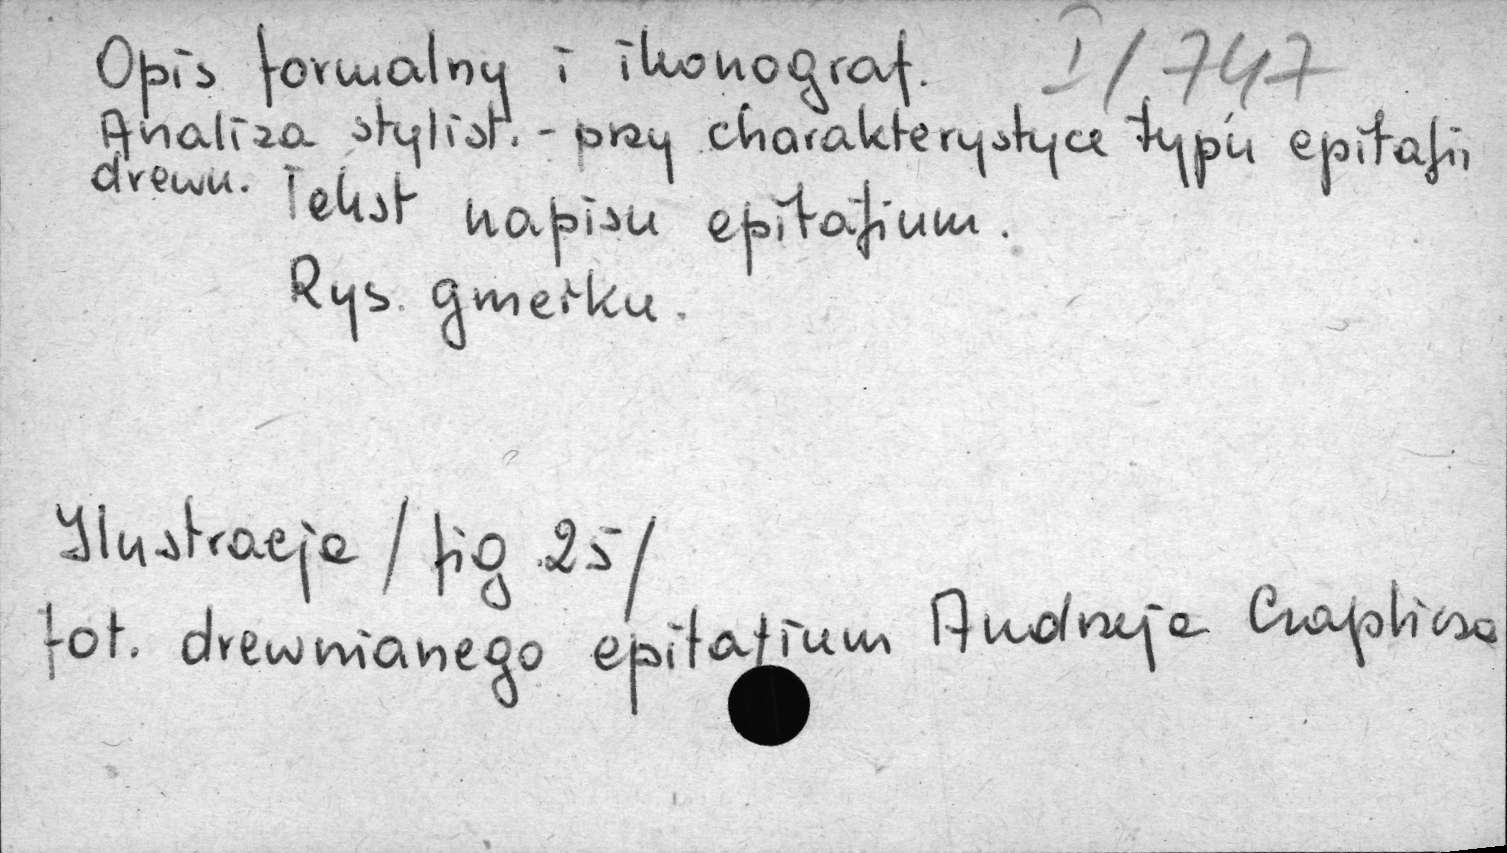 Opis formalny i ikonograf. I/747
Analiza stylist. - przy charakterystyce typu epitafii
drewn. Tekst napisu epitafium.
Rys. gmerku.
Ilustracje / fig 25/
fot. drewnianego epitafium Andrzeja Czaplicza